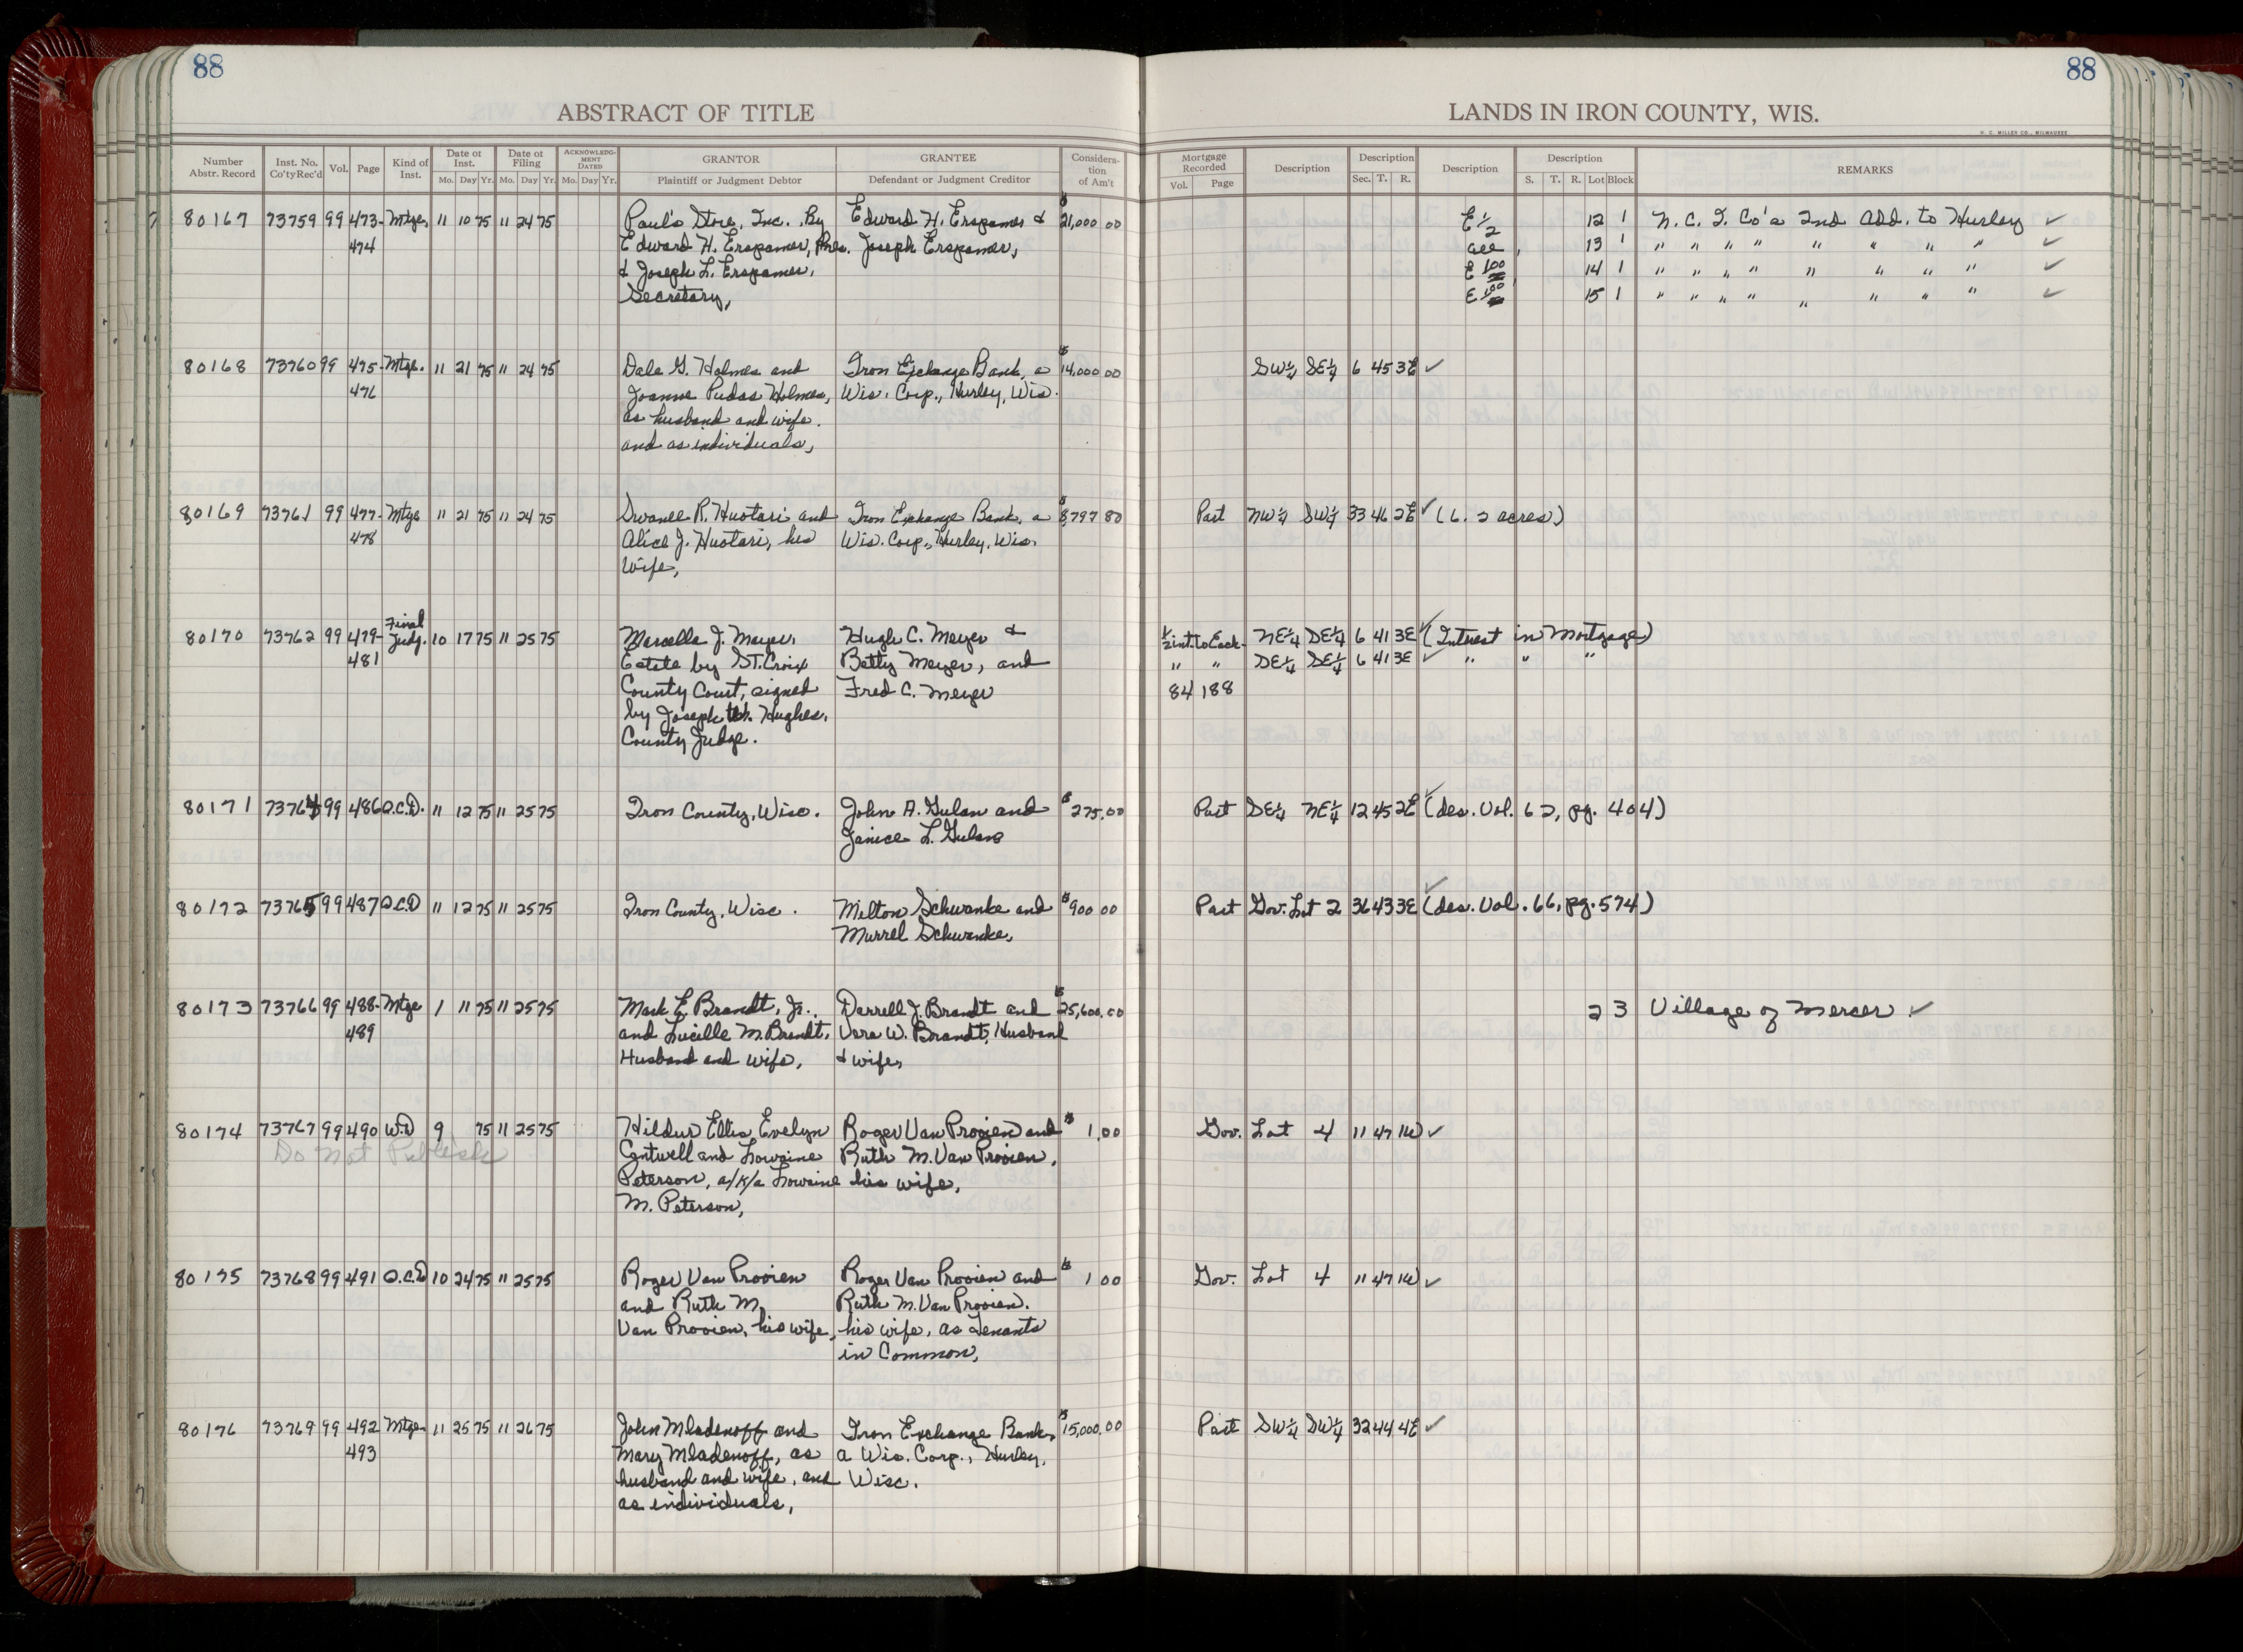 88
88
ABSTRACT OF TITLE
LANDS IN IRON COUNTY, WIS.
H. C. MILLER CO., MILWAUKEE
Number Abstr. Record | Inst. No. Co'ty Rec'd | Vol. | Page | Kind of Inst. | Date of Inst. Mo. Day Yr. | Date of Filing Mo. Day Yr. | ACKNOWLEDGMENT DATED Mo. Day Yr. | GRANTOR Plaintiff or Judgment Debtor | GRANTEE Defendant or Judgment Creditor | Consideration of Am't
Mortgage Recorded Vol. Page | Description | Description Sec. T. R. | Description | Description S. T. R. Lot Block | REMARKS
80167 73759 99 473- Mtge. 11 10 75 11 24 75 Paul's Store, Inc. By Edward H. Erspamer & $21,000.00 E 1/2 12 1 N. C. I. Co's 2nd Add. to Hurley ✓
474 Edward H. Erspamer, Pres. Joseph Erspamer, all 13 1 " " " " " " " " ✓
& Joseph L. Erspamer, E 100 14 1 " " " " " " " " ✓
Secretary, E 100 15 1 " " " " " " " " ✓
80168 73760 99 475- Mtge. 11 21 75 11 24 75 Dale G. Holmes and Iron Exchange Bank, a $14,000.00 SW¼ SE¼ 6 45 3E ✓
476 Joanne Pudas Holmes, Wis. Corp., Hurley, Wis.
as husband and wife.
and as individuals,
80169 73761 99 477- Mtge 11 21 75 11 24 75 Dwanee R. Huotari and Iron Exchange Bank, a $8,797 80 Part NW¼ SW¼ 33 46 2E ✓ (6.2 acres)
478 Alice J. Huotari, his Wis. Corp., Hurley, Wis.
Wife,
80170 73762 99 479- Final Judg. 10 17 75 11 25 75 Marcella J. Meyer, Hugh C. Meyer & ½ int. to Each. NE¼ SE¼ 6 41 3E ✓ (Interest in Mortgage)
481 Estate by St. Croix Betty Meyer, and " " SE¼ SE¼ 6 41 3E ✓ " " "
County Court, signed Fred C. Meyer 84 188
by Joseph W. Hughes,
County Judge.
80171 73764 99 486 Q.C.D. 11 12 75 11 25 75 Iron County, Wisc. John A. Gulan and $275.00 Part SE¼ NE¼ 12 45 2E ✓ (des. Vol. 62, pg. 404)
Janice L. Gulan
80172 73765 99 487 Q.C.D 11 12 75 11 25 75 Iron County, Wisc. Milton Schwanke and $900 00 Part Gov. Lot 2 36 43 3E ✓ (des. Vol. 66, pg. 574)
Murrel Schwanke,
80173 73766 99 488- Mtge 1 11 75 11 25 75 Mark E. Brandt, Jr., Darrell J. Brandt and $25,600.00 2 3 Village of Mercer ✓
489 and Lucille M. Brandt, Vera W. Brandt, Husband
Husband and wife, & wife,
80174 73767 99 490 W.D 9 75 11 25 75 Hildur Ellis, Evelyn Roger Van Prooien and $1.00 Gov. Lot 4 11 47 1W ✓
Do Not Publish Cantwell and Lowaine Ruth M. Van Prooien,
Peterson, a/k/a Lowaine his wife,
M. Peterson,
80175 73768 99 491 Q.C.D 10 24 75 11 25 75 Roger Van Prooien Roger Van Prooien and $1 00 Gov. Lot 4 11 47 1W ✓
and Ruth M. Ruth M. Van Prooien.
Van Prooien, his wife, his wife, as Tenants
in Common,
80176 73769 99 492 Mtge. 11 25 75 11 26 75 John Mladenoff and Iron Exchange Bank, $15,000.00 Part SW¼ SW¼ 32 44 4E ✓
493 Mary Mladenoff, as a Wis. Corp., Hurley,
husband and wife, and Wisc.
as individuals,